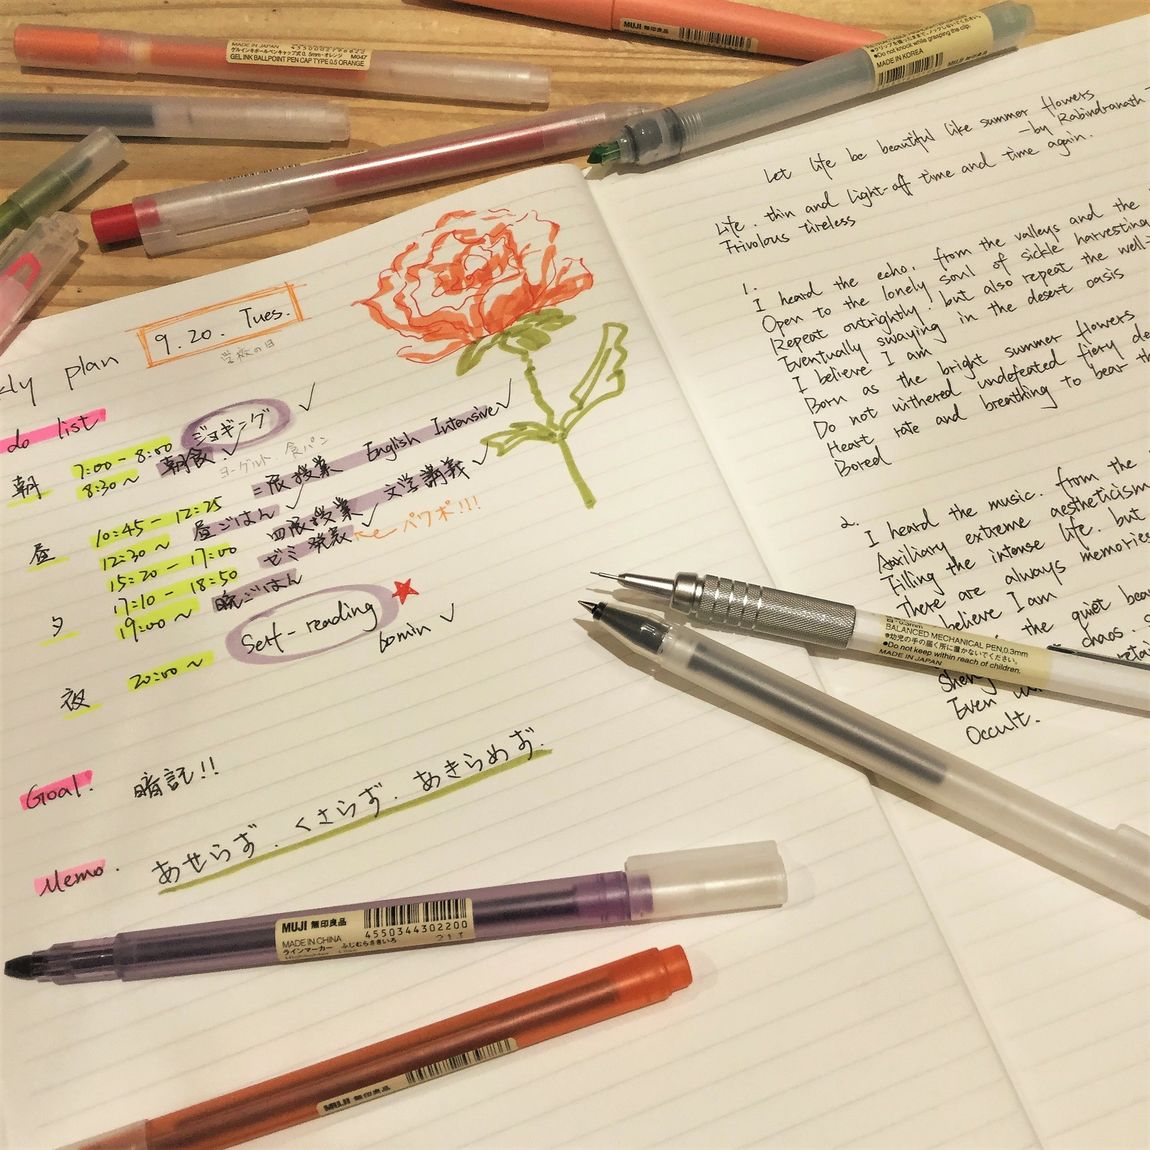 MUJI 無印良品
MADE IN JAPAN
GEL INK BALLPOINT PEN CAP TYPE 0.5 ORANGE
M047
Do not knock while grasping the clip.
MADE IN KOREA
9.20. Tues.
plan
do list
朝 7:00 - 8:00 ジョギング
8:30~ 朝食
ヨーグルト・食パン
昼 10:45 - 12:25 二限授業 English Intensive
12:30~ 昼ごはん
15:20 - 17:00 四限授業 文学講義
夕 17:10 - 18:50 ゼミ発表 ← パワポ!!!
19:00~ 晩ごはん
夜 20:00~ Self-reading 60min
Goal. 暗記!!
Memo. あせらず．くさらず．あきらめず．
Let life be beautiful like summer flowers
-by Rabindranath
Life. thin and light-off time and time again.
Frivolous tireless
1.
I heard the echo. from the valleys and the
Open to the lonely soul of sickle harvesting
Repeat outrightly. but also repeat the well-
Eventually swaying in the desert oasis
I believe I am
Born as the bright summer flowers
Do not withered undefeated fiery
Heart rate and breathing to bear the
Bored
2.
I heard the music. from the
Auxiliary extreme aestheticism
Filling the intense life. but
There are always memories
believe I am
the quiet
chaos.
Even
Occult.
0.3mm
BALANCED MECHANICAL PEN, 0.3mm
●幼児の手の届く所に置かないでください。
●Do not keep within reach of children.
MADE IN JAPAN
MUJI 無印良品
4550344302200
MADE IN CHINA
ラインマーカー ふじむらさきいろ
MUJI 無印良品